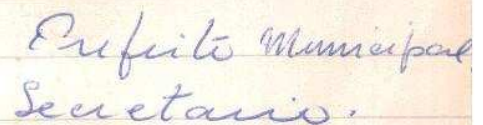 Prefeito Municipal
Secretario.